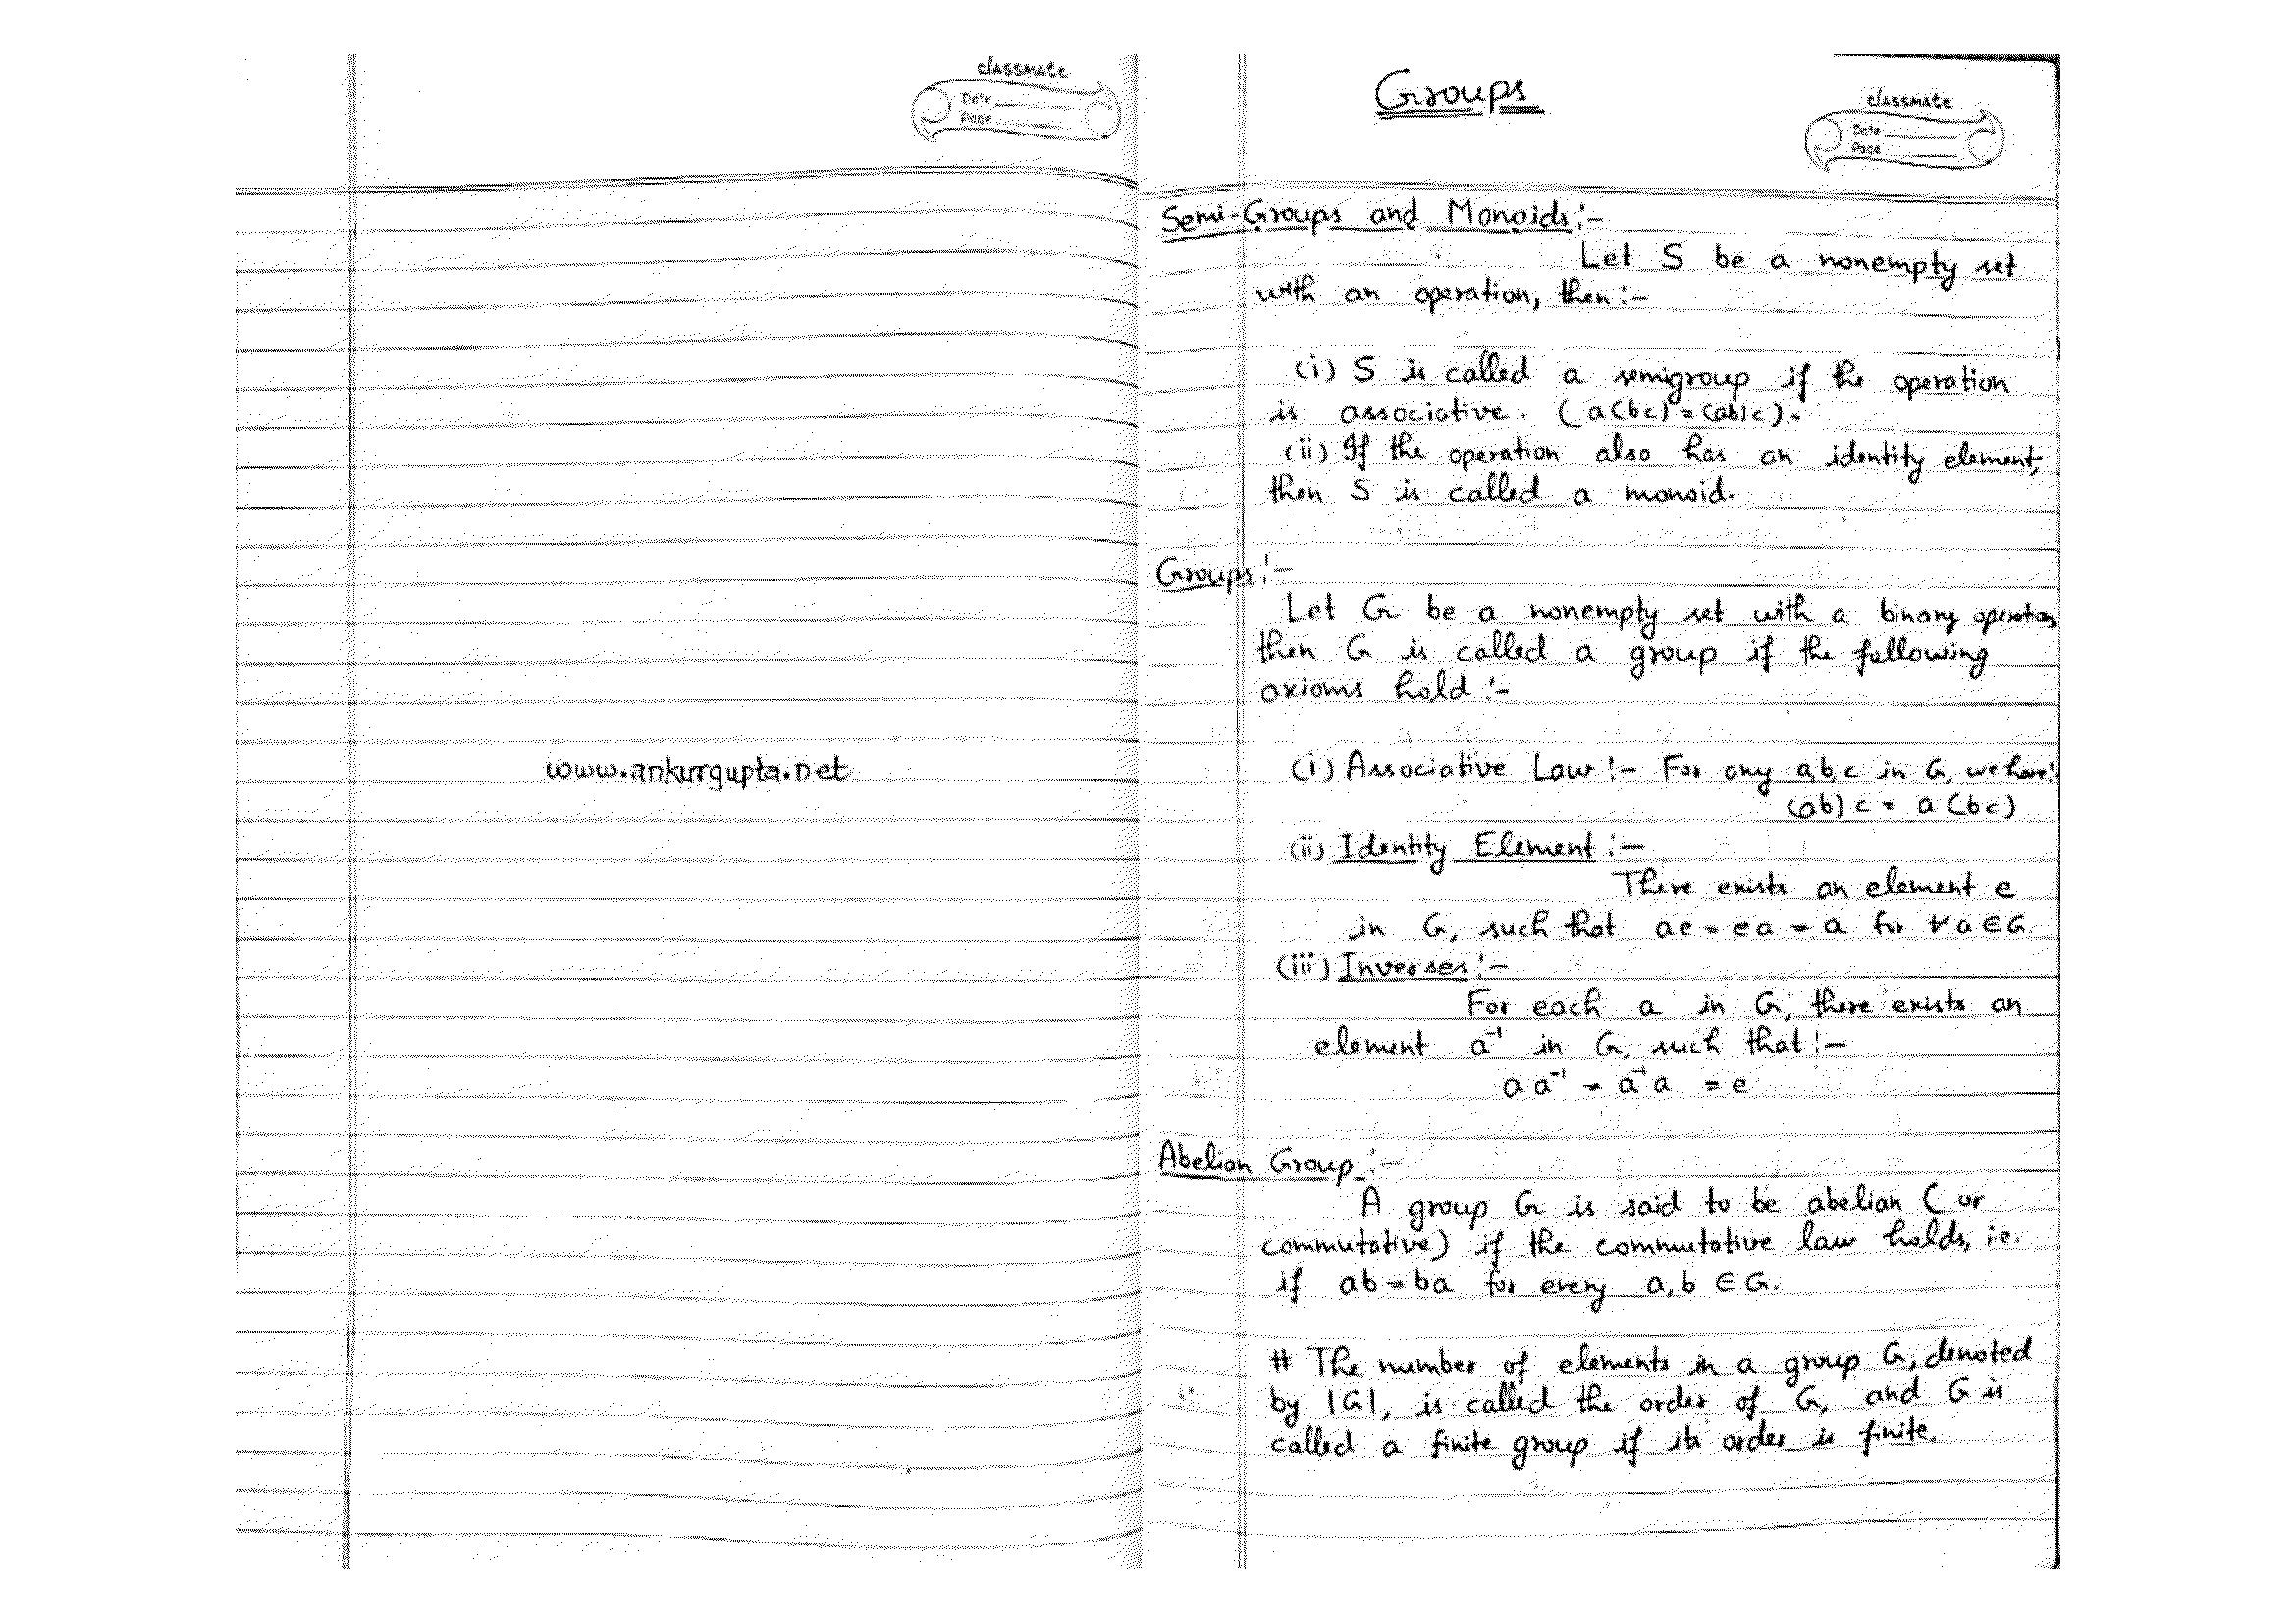 classmate
Date
Page
www.ankurgupta.net
Groups
classmate
Date
Page
Semi-Groups and Monoids:-
Let S be a nonempty set
with an operation, then:-
(i) S is called a semigroup if the operation
is associative. (a(bc)=(ab)c).
(ii) If the operation also has an identity element,
then S is called a monoid.
Groups:-
Let G be a nonempty set with a binary operation,
then G is called a group if the following
axioms hold:-
(i) Associative Law:- For any a b c in G, we have:
(ab)c = a(bc)
(ii) Identity Element:-
There exists an element e
in G, such that ae = ea = a for ∀ a ∈ G.
(iii) Inverses:-
For each a in G, there exists an
element a⁻¹ in G, such that:-
a a⁻¹ = a⁻¹ a = e
Abelian Group:-
A group G is said to be abelian (or
commutative) if the commutative law holds, i.e.
if ab = ba for every a, b ∈ G.
# The number of elements in a group G, denoted
by |G|, is called the order of G, and G is
called a finite group if its order is finite.